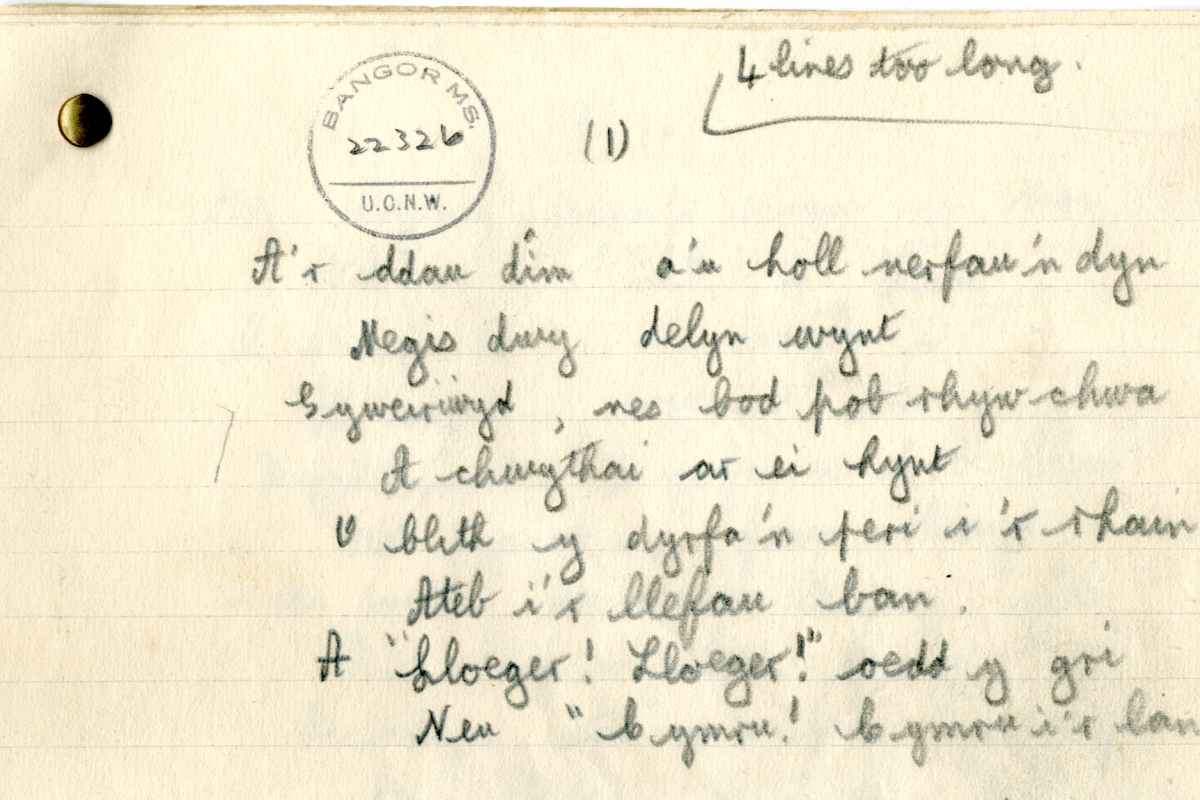 4 lines too long.
BANGOR MS.
22326
U.C.N.W.
(1)
A'r ddau dîm a'u holl nerfau'n dyn
Megis dwy delyn wynt
Gyweiriwyd, nes bod pob rhyw chwa
A chwythai ar ei hynt
O blith y dyrfa'n peri i'r rhain
Ateb i'r llefau ban.
A "Lloegr! Lloegr!" oedd y gri
Neu "Cymru! Cymru i'r lan